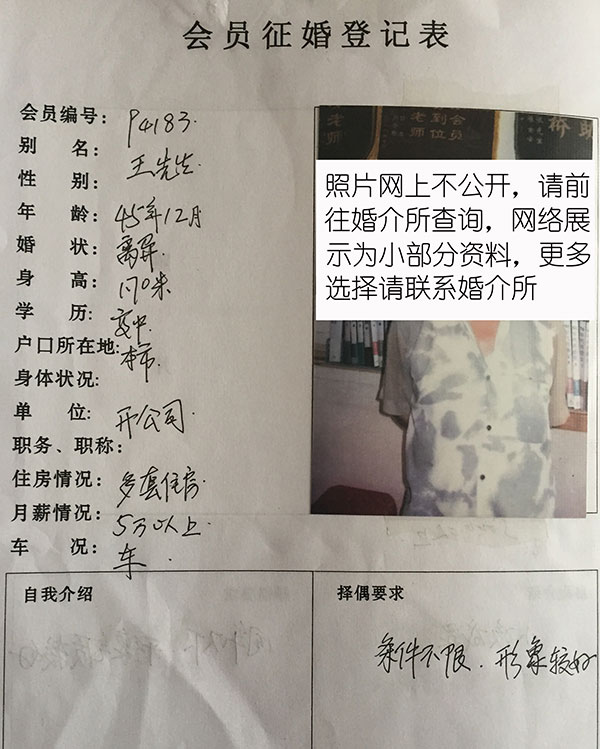 会员征婚登记表
会员编号: P4183.
别 名: 王先生.
性 别:
年 龄: 45年12月
婚 状: 离异.
身 高: 170米
学 历: 高中.
户口所在地: 本市.
身体状况:
单 位: 开公司.
职务、职称:
住房情况: 多套住房.
月薪情况: 5万以上.
车 况: 车.
老师
老师
到位
会员
桥
照片网上不公开，请前
往婚介所查询，网络展
示为小部分资料，更多
选择请联系婚介所
自我介绍
择偶要求
条件不限. 形象较好